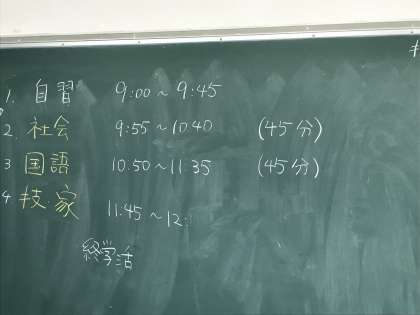 1. 自習 9:00～9:45
2. 社会 9:55～10.40 (45分)
3 国語 10.50～11.35 (45分)
4 技家 11.45～12:
終学活